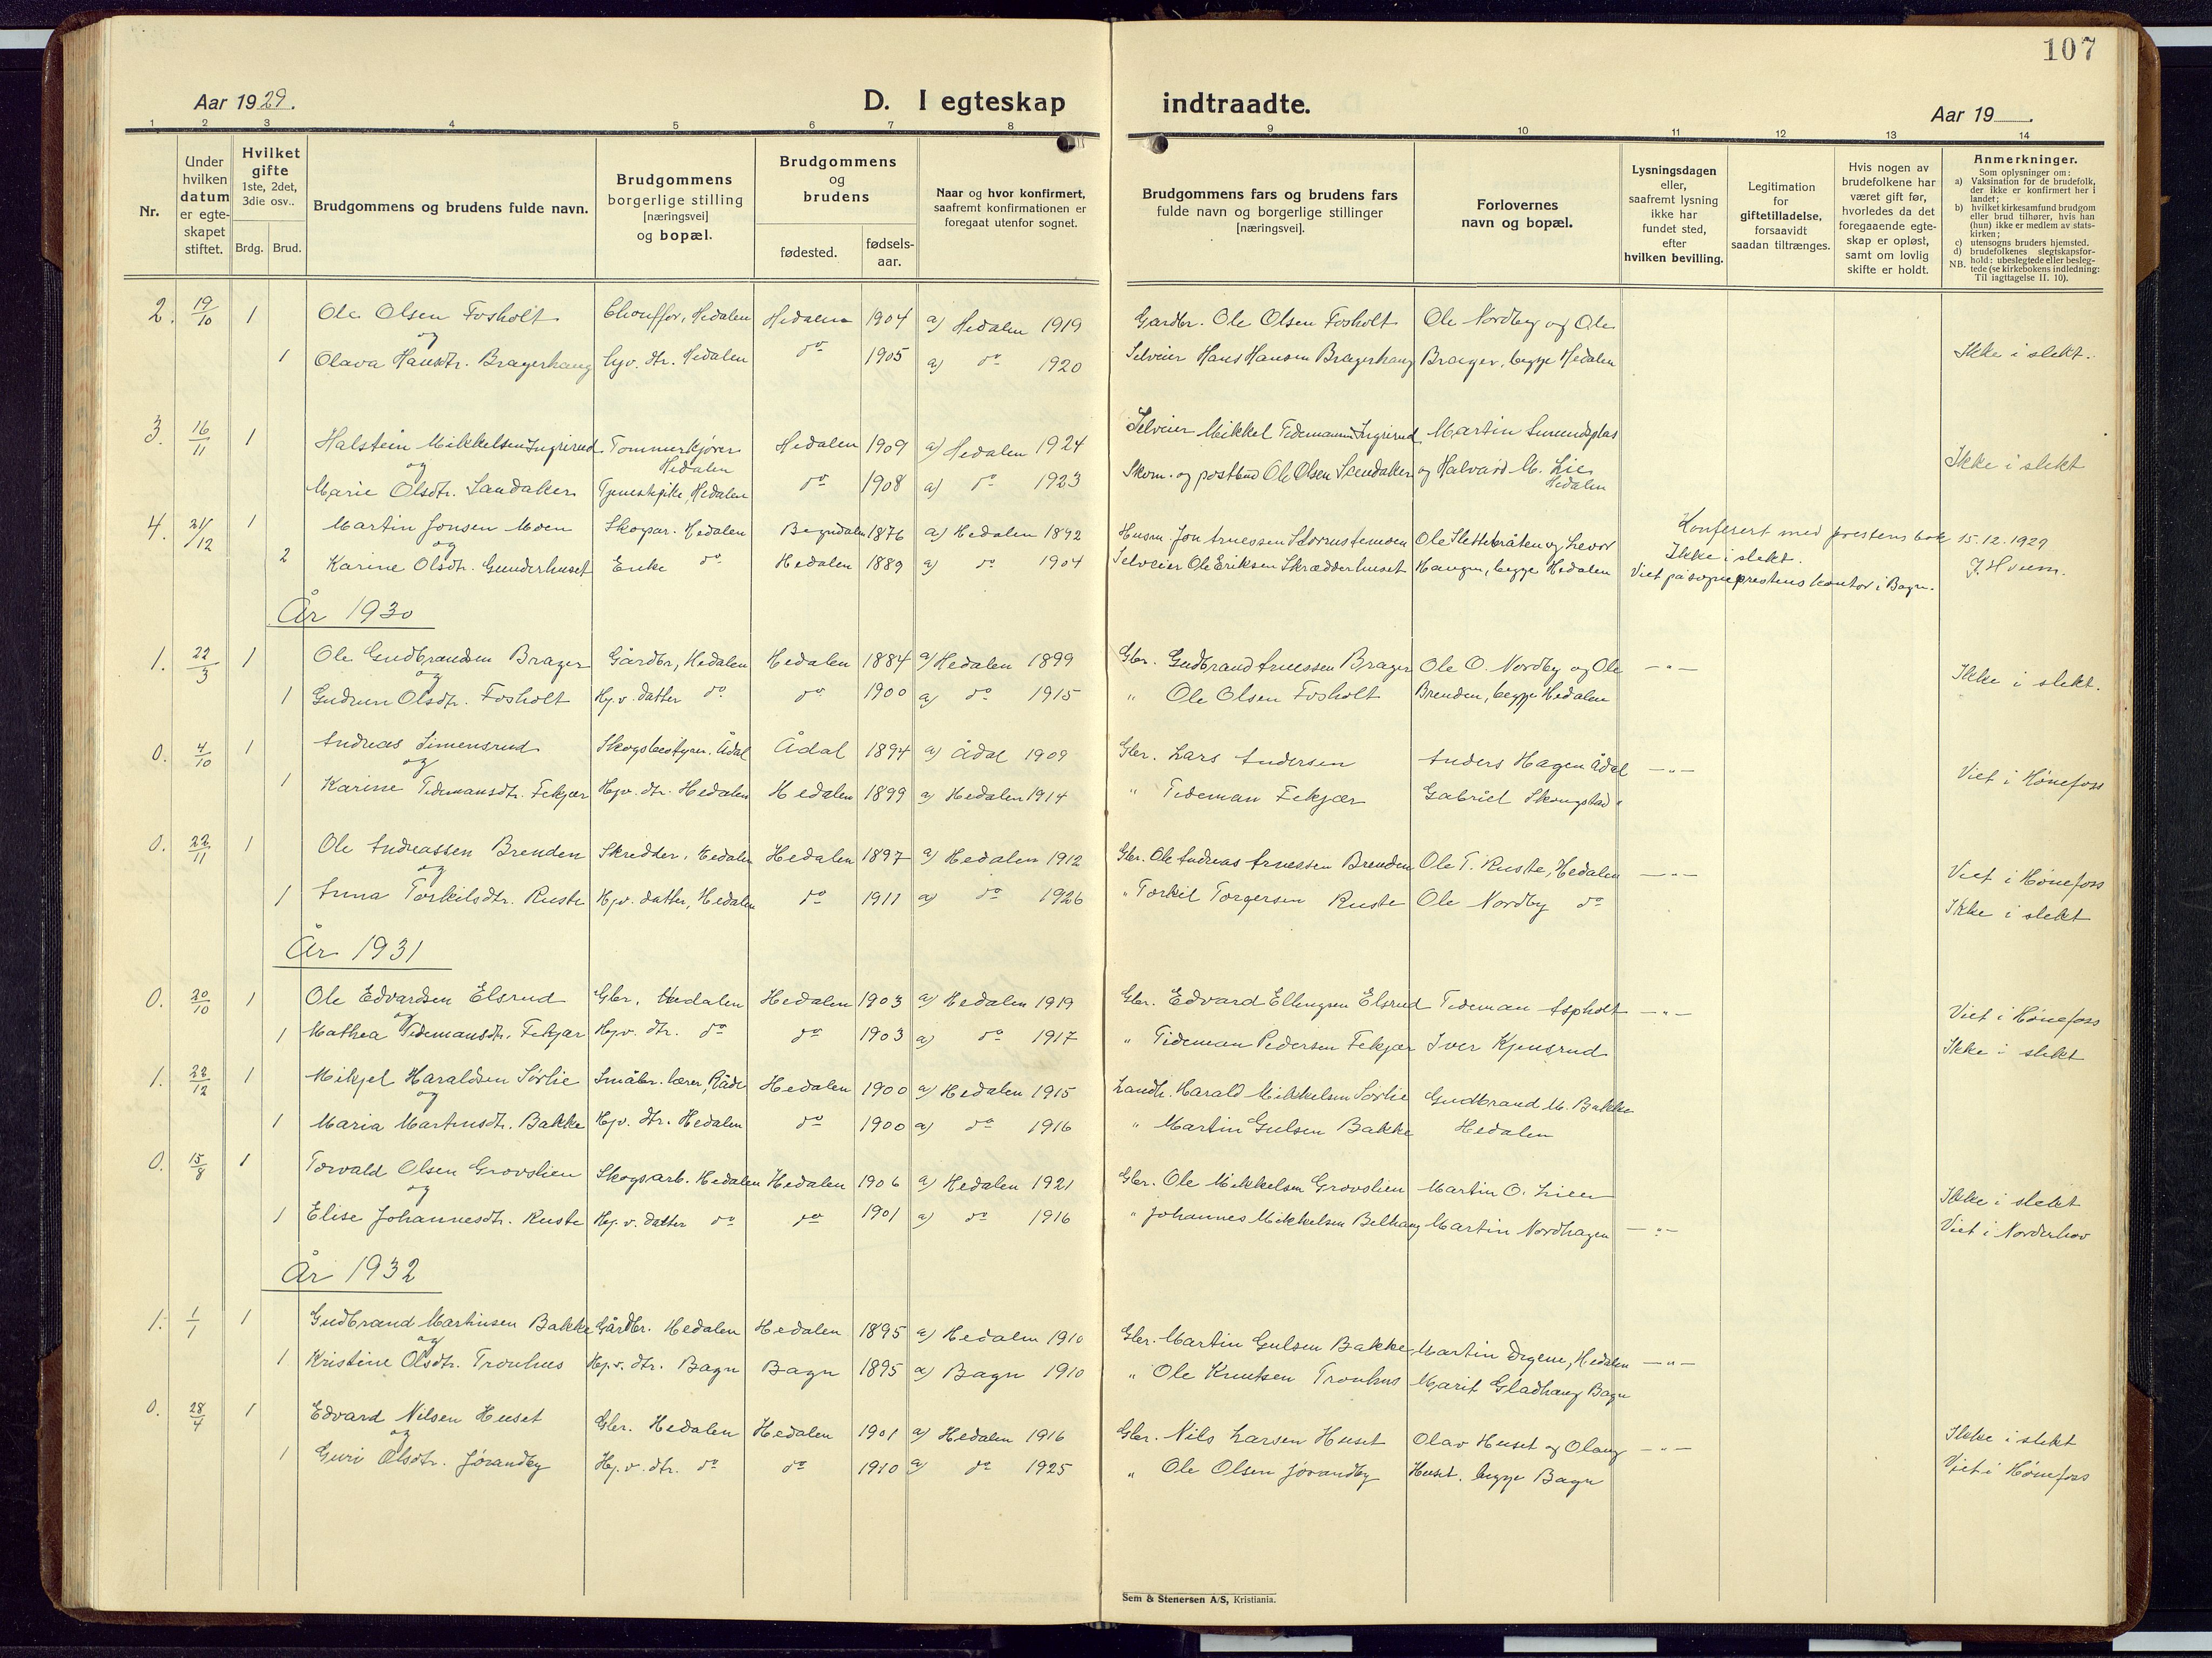 107
Aar 1929.
D. I egteskap indtraadte.
Aar 19
1 2 3 4 5 6 7 8 9 10 11 12 13 14
Nr.
Under hvilken datum er egteskapet stiftet.
Hvilket gifte 1ste, 2det, 3die osv..
Brdg. Brud.
Brudgommens og brudens fulde navn.
Brudgommens borgerlige stilling [næringsvei] og bopæl.
Brudgommens og brudens
fødested. fødselsaar.
Naar og hvor konfirmert, saafremt konfirmationen er foregaat utenfor sognet.
Brudgommens fars og brudens fars fulde navn og borgerlige stillinger [næringsvei].
Forlovernes navn og bopæl.
Lysningsdagen eller, saafremt lysning ikke har fundet sted, efter hvilken bevilling.
Legitimation for giftetilladelse, forsaavidt saadan tiltrænges.
Hvis nogen av brudefolkene har været gift før, hvorledes da det foregaaende egteskap er opløst, samt om lovlig skifte er holdt.
Anmerkninger.
Som oplysninger om:
a) Vaksination for de brudefolk, der ikke er konfirmert her i landet;
b) hvilket kirkesamfund brudgom eller brud tilhører, hvis han (hun) ikke er medlem av statskirken;
c) utensogns bruders hjemsted.
d) brudefolkenes slegtskapsforhold: ubeslegtede eller beslegtede (se kirkebokens indledning:
NB. Til iagttagelse II. 10).
2. 19/10 1 Ole Olsen Fosholt Chouffør, Hedalen Hedalen 1904 a) Hedalen 1919 Gardbr. Ole Olsen Fosholt Ole Nordby og Ole
og
1 Olava Hansdtr. Bragerhaug hjv. dtr. Hedalen do 1905 a) do 1920 Selveier Hans Hansen Bragerhaug Brager, begge Hedalen Ikke i slekt.
3. 16/11 1 Halstein Mikkelsen Ingrirud Tømmerkjører Hedalen Hedalen 1909 a) Hedalen 1924 Selveier Mikkel Tidemann Ingrirud Martin
og
Marie Olsdtr. Sandaker Tjenestepike Hedalen do 1908 a) do 1923 Skom. og postbud Ole Olsen Sandaker og Halvard M. Lie Hedalen Ikke i slekt
4. 21/12 1 Martin Jonsen Moen Skogsar. Hedalen Begndalen 1876 a) Hedalen 1892 Husm. Jon Arnessen Storrustemoen Ole Slettebråten og Levor
og
2 Karine Olsdtr. Gunderhuset Enke do Hedalen 1889 a) do 1904 Selveier Ole Eriksen Skrædderhuset Haugen, begge Hedalen
Konferert med prestens bok 15.12.1929
Ikke i slekt.
Viet på sogneprestens kontor i Bagn.
År 1930
1. 22/3 1 Ole Gudbrandsen Brager Gårdbr, Hedalen Hedalen 1884 a) Hedalen 1899 Gbr. Gudbrand Arnessen Brager Ole O. Nordby og Ole — " —
og
1 Gudrun Olsdtr. Fosholt Hj.v. datter do do 1900 a) do 1915 " Ole Olsen Fosholt Brenden, begge Hedalen Ikke i slekt.
0. 4/10 1 Andreas Simensrud Skogsbestyrer. Ådal Ådal 1894 a) Ådal 1909 Gbr. Lars Andersen Anders Hagen Ådal — " —
og
1 Karine Tidemansdtr. Fekjær Hjv. dtr. Hedalen Hedalen 1899 a) Hedalen 1914 " Tideman Fekjær Gabriel Skougstad " Viet i Hønefoss
0. 22/11 1 Ole Andreassen Brenden Skredder, Hedalen Hedalen 1897 a) Hedalen 1912 Gbr. Ole Andreas Arnessen Brenden Ole T. Ruste, Hedalen — " — Viet i Hønefoss
og
1 Anna Torkilsdtr. Ruste Hjv. datter, Hedalen do 1911 a) do 1926 " Torkil Torgersen Ruste Ole Nordby do Ikke i slekt
År 1931
0. 20/10 1 Ole Edvardsen Elsrud Gbr, Hedalen Hedalen 1903 a) Hedalen 1919 Gbr. Edvard Ellingsen Elsrud Tideman Aspholt — " — Viet i Hønefoss
og
1 Mathea Tidemansdtr. Fekjær Hjv. dtr. do do 1903 a) do 1917 " Tideman Pedersen Fekjær Iver Kjensrud Ikke i slekt
1. 22/12 1 Mikjel Haraldsen Sørlie Småbr. lærer, Råde Hedalen 1900 a) Hedalen 1915 Landh. Harald Mikkelsen Sørlie Gudbrand M. Bakke
og
1 Maria Martinsdtr. Bakke Hjv. dtr. Hedalen do 1900 a) do 1916 " Martin Gulsen Bakke Hedalen
0. 15/8 1 Torvald Olsen Grovslien Skogsarb. Hedalen Hedalen 1906 a) Hedalen 1921 Gbr. Ole Mikkelsen Grovslien Martin O. Lien Ikke i slekt
og
1 Elise Johannesdtr. Ruste Hj.v. datter do do 1901 a) do 1916 " Johannes Mikkelsen Belhaug Martin Nordhagen — " — Viet i Norderhov
År 1932
1. 1/1 1 Gudbrand Martinsen Bakke Gårdbr. Hedalen Hedalen 1895 a) Hedalen 1910 Gbr. Martin Gulsen Bakke Martin Ørgene, Hedalen — " —
og
1 Kristine Olsdtr. Tronhus Hj.v. dtr. Bagn Bagn 1895 a) Bagn 1910 " Ole Knutsen Tronhus Marit Gladhaug Bagn
0. 28/4 1 Edvard Nilsen Huset Gbr. Hedalen Hedalen 1901 a) Hedalen 1916 Gbr. Nils Larsen Huset Olav Huset og Olaug — " — Ikke i slekt
og
1 Guri Olsdtr. Jørandby Hj.v. dtr. do do 1910 a) do 1925 " Ole Olsen Jørandby Huset, begge Bagn Viet i Hønefoss
Sem & Stenersen A/S, Kristiania.